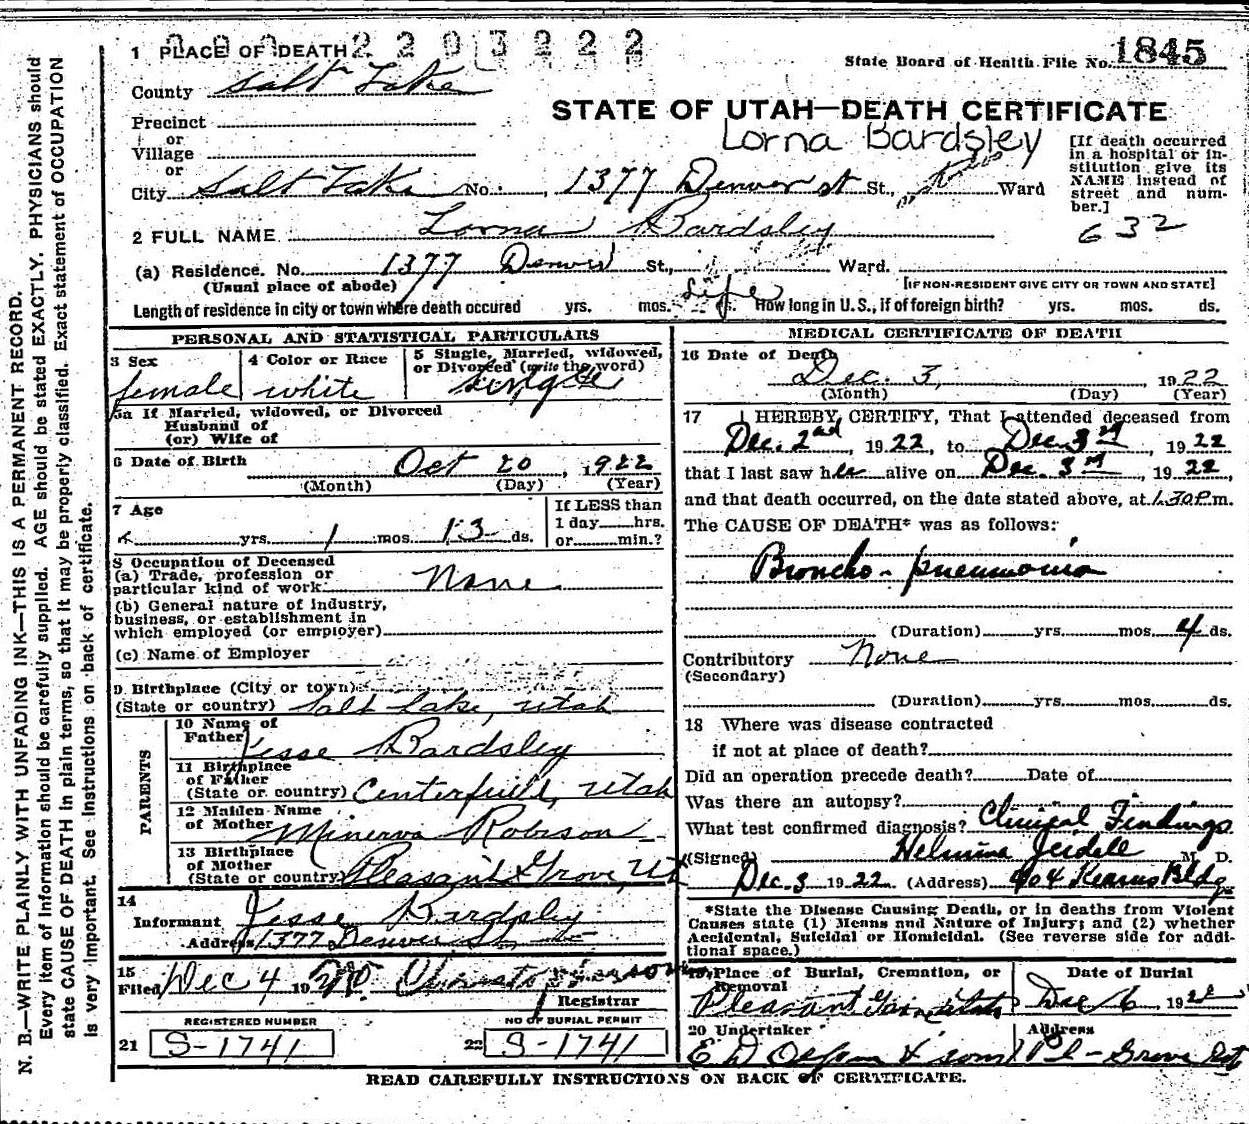 1 PLACE OF DEATH
State Board of Health File No. 1845
County Salt Lake
STATE OF UTAH—DEATH CERTIFICATE
Precinct
or
Village
or
Lorna Bardsley
[If death occurred in a hospital or institution give its NAME instead of street and number.]
City Salt Lake No. 1377 Denver St St., Ward
632
2 FULL NAME Lorna Bardsley
(a) Residence. No. 1377 Denver St., Ward.
(Usual place of abode)
[IF NON-RESIDENT GIVE CITY OR TOWN AND STATE]
Length of residence in city or town where death occured yrs. mos. Life ds. How long in U.S., if of foreign birth? yrs. mos. ds.
PERSONAL AND STATISTICAL PARTICULARS
3 Sex
female
4 Color or Race
white
5 Single, Married, widowed, or Divorced (write the word)
single
5a If Married, widowed, or Divorced
Husband of
(or) Wife of
6 Date of Birth Oct 20, 1922
(Month) (Day) (Year)
7 Age
yrs. 1 mos. 13 ds.
If LESS than
1 day hrs.
or min.?
8 Occupation of Deceased
(a) Trade, profession or
particular kind of work None
(b) General nature of industry,
business, or establishment in
which employed (or employer)
(c) Name of Employer
9 Birthplace (City or town)
(State or country) Salt Lake, Utah
PARENTS
10 Name of
Father Jesse Bardsley
11 Birthplace
of Father
(State or country) Centerfield, Utah
12 Maiden Name
of Mother Minerva Robison
13 Birthplace
of Mother
(State or country) Pleasant Grove, Ut
14
Informant Jesse Bardsley
Address 1377 Denver St
15
Filed Dec 4 19
Registrar
REGISTERED NUMBER
21 S-1741
NO OF BURIAL PERMIT
22 S-1741
MEDICAL CERTIFICATE OF DEATH
16 Date of Death
Dec. 3, 1922
(Month) (Day) (Year)
17 I HEREBY CERTIFY, That I attended deceased from
Dec. 2nd 1922, to Dec. 3rd, 1922
that I last saw her alive on Dec. 3rd, 1922
and that death occurred, on the date stated above, at 1.30 P.m.
The CAUSE OF DEATH* was as follows:
Broncho-pneumonia
(Duration) yrs. mos. 4 ds.
Contributory None
(Secondary)
(Duration) yrs. mos. ds.
18 Where was disease contracted
if not at place of death?
Did an operation precede death? Date of
Was there an autopsy?
What test confirmed diagnosis? Clinical Findings
(Signed) M. D.
Dec. 3 1922 (Address) 404 Kearns Bldg
*State the Disease Causing Death, or in deaths from Violent
Causes state (1) Means and Nature of Injury; and (2) whether
Accidental, Suicidal or Homicidal. (See reverse side for addi-
tional space.)
19 Place of Burial, Cremation, or
Removal
Pleasant Grove Utah
Date of Burial
Dec 6 192
20 Undertaker
E D & Sons
Address
Pl-Grove Ut
READ CAREFULLY INSTRUCTIONS ON BACK OF CERTIFICATE.
N. B.—WRITE PLAINLY WITH UNFADING INK—THIS IS A PERMANENT RECORD.
Every item of information should be carefully supplied. AGE should be stated EXACTLY. PHYSICIANS should
state CAUSE OF DEATH in plain terms, so that it may be properly classified. Exact statement of OCCUPATION
is very important. See Instructions on back of certificate.